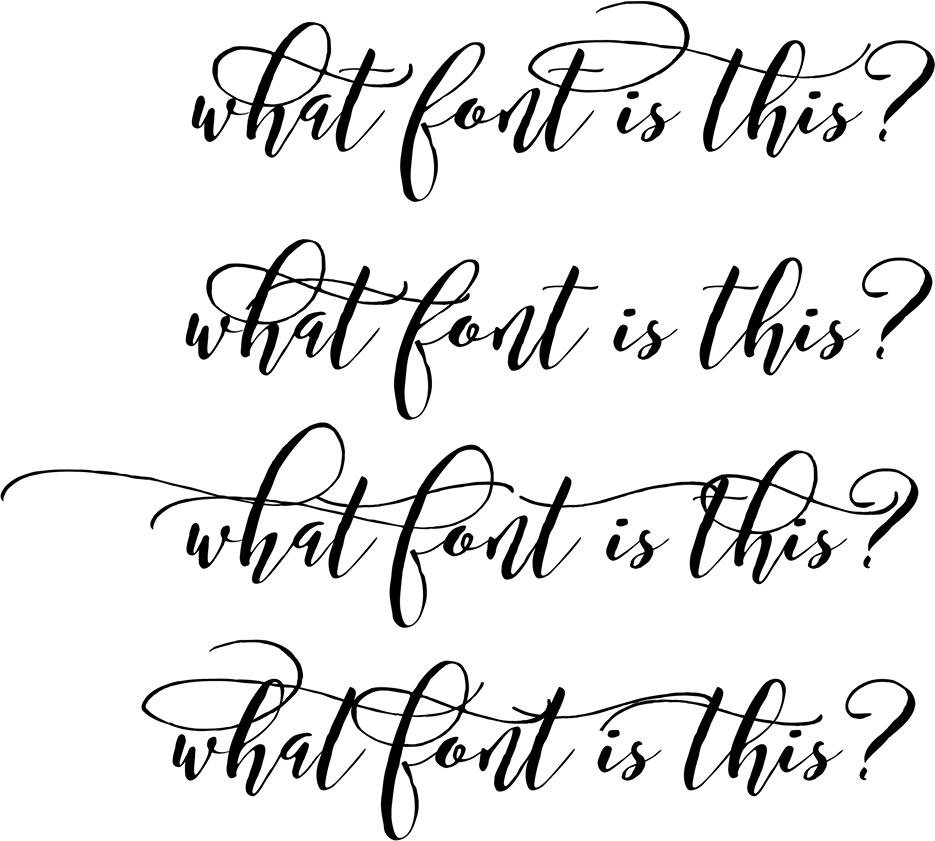 what font is this?
what font is this?
what font is this?
what font is this?